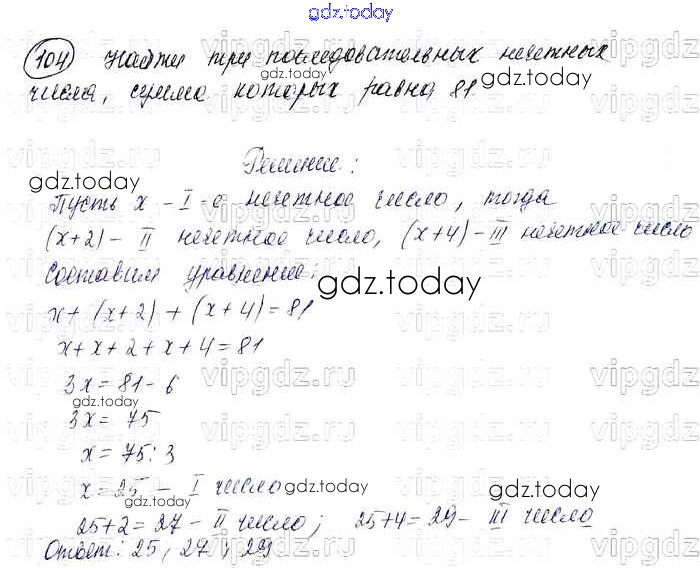 gdz.today
104 Найти три последовательных нечетных
числа, сумма которых равна 81.
gdz.today
Решение:
gdz.today
Пусть x - I-е нечетное число, тогда
(x+2) - II нечетное число, (x+4) - III нечетное число
Составим уравнение:
gdz.today
x + (x+2) + (x+4) = 81
x+x+2+x+4=81
3x = 81-6
gdz.today
3x = 75
x = 75:3
gdz.today
x = 25 - I число
25+2=27 - II число; 25+4=29 - III число
gdz.today
gdz.today
Ответ: 25; 27; 29
vipgdz.ru